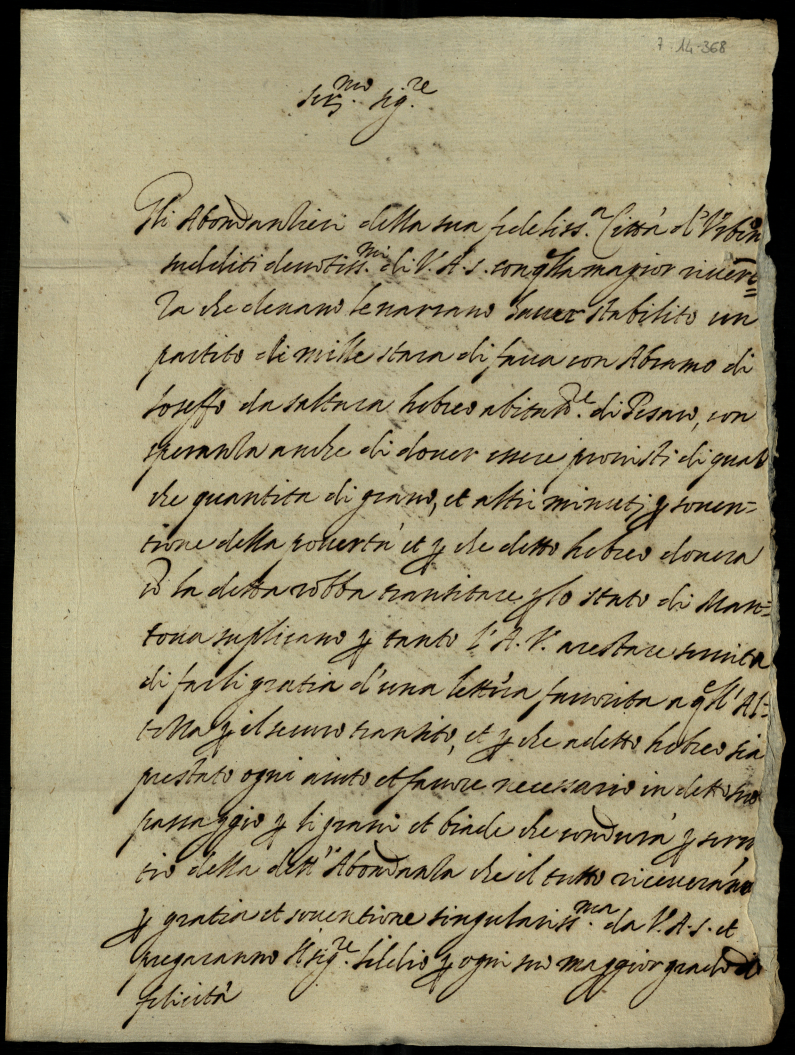 7-14-368
Ser.mo Sig.re
Gli Abondantieri della sua fedeliss.a Città d'Urbin
sudditi devotiss.mi di V.A.S. con qlla magior rivere=
za che devano le narrano haver stabilito un
partito di mille stara di fava con Abramo di
Joseffo da Saltara hebreo abitator.e di Pesaro, con
speranza anche di dover essere provisti di qual
che quantita di grano, et altri minuti p soven=
tione della povertà et p che detto hebreo dovera
la detta robba transitare p lo stato di Man=
tova suplicano p tanto l'A.V. a restare servita
di farli gratia d'una lettera favorita a qll'Al=
tezza p il securo transito, et p che a detto hebreo sia
prestato ogni aiuto et favore necessario in detto suo
passaggio p li grani et biade che condurà p servi
tio della dett' Abondanza che il tutto riceverano
p gratia et soventione singulariss.ma da V.A.S. et
pregaranno il Sig.re Iddio p ogni suo maggior grado di
felicità